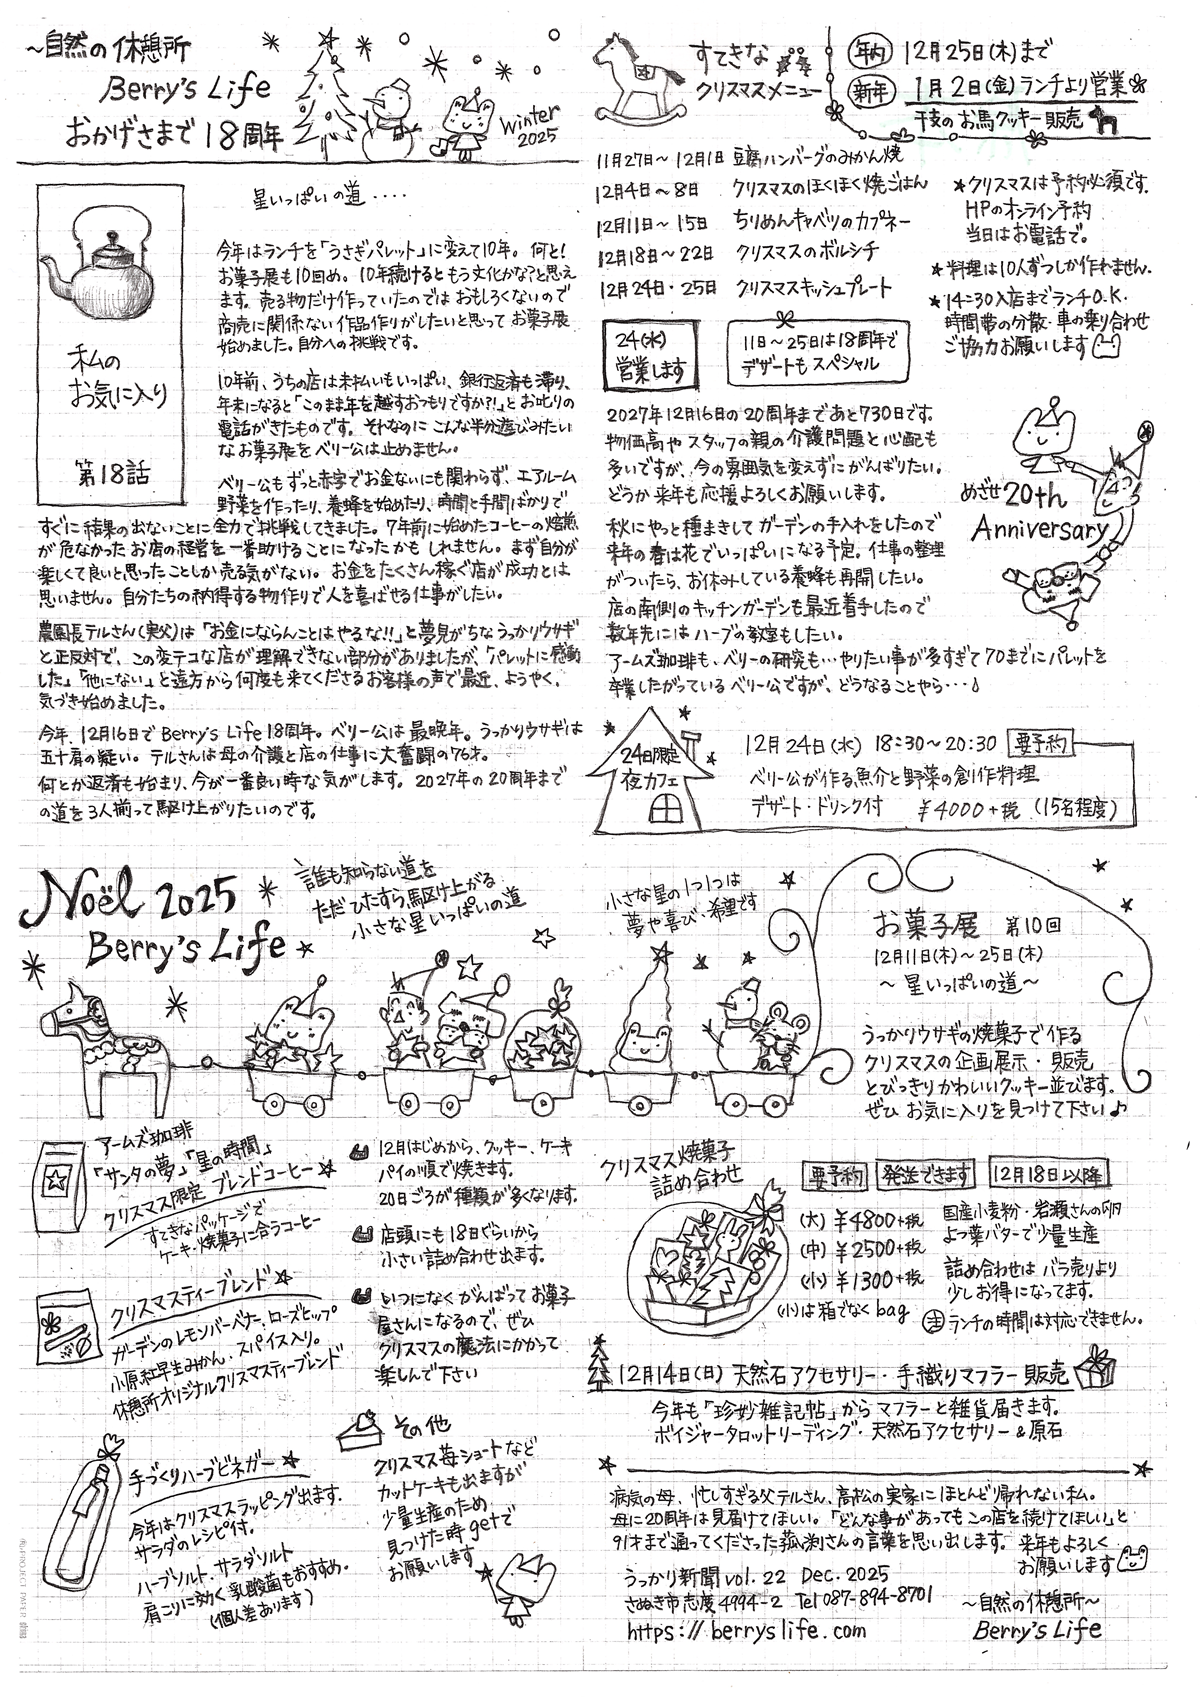 ～自然の休憩所
Berry's Life
おかげさまで 18周年
winter
2025
私の
お気に入り
第18話
星いっぱいの道・・・・
今年はランチを「うさぎパレット」に変えて10年。何と!
お菓子展も10回め。10年続けるともう文化かな?と思え
ます。売る物だけ作っていたのではおもしろくないので
商売に関係ない作品作りがしたいと思ってお菓子展
始めました。自分への挑戦です。
10年前、うちの店は未払いもいっぱい、銀行返済も滞り、
年末になると「このまま年を越すおつもりですか?!」とお叱りの
電話がきたものです。それなのにこんな半分遊びみたい
なお菓子展をベリー公は止めません。
ベリー公もずっと赤字でお金ないにも関わらず、エアルーム
野菜を作ったり、養蜂を始めたり、時間と手間ばかりで
すぐに結果の出ないことに全力で挑戦してきました。7年前に始めたコーヒーの焙煎
が危なかったお店の経営を一番助けることになったかもしれません。まず自分が
楽しくて良いと思ったことしか売る気がない。お金をたくさん稼ぐ店が成功とは
思いません。自分たちの納得する物作りで人を喜ばせる仕事がしたい。
農園長テルさん(実父)は「お金にならんことはやるな!!」と夢見がちなうっかりウサギ
と正反対で、この変テコな店が理解できない部分がありましたが、「パレットに感動
した」「他にない」と遠方から何度も来てくださるお客様の声で最近、ようやく、
気づき始めました。
今年、12月16日でBerry's Life 18周年。ベリー公は最晩年。うっかりウサギは
五十肩の疑い。テルさんは母の介護と店の仕事に大奮闘の76才。
何とか返済も始まり、今が一番良い時な気がします。2027年の20周年まで
の道を3人揃って駆け上がりたいのです。
すてきな
クリスマスメニュー
年内 12月25日(木)まで
新年 1月2日(金)ランチより営業
干支のお馬クッキー販売
11月27日～12月1日 豆腐ハンバーグのみかん焼
12月4日～8日 クリスマスのほくほく焼ごはん
12月11日～15日 ちりめんキャベツのカプネー
12月18日～22日 クリスマスのボルシチ
12月24日・25日 クリスマスキッシュプレート
★クリスマスは予約必須です。
HPのオンライン予約
当日はお電話で。
★料理は10人ずつしか作れません。
★14:30入店までランチO.K.
時間帯の分散・車の乗り合わせ
ご協力お願いします
24(水)
営業します
11日～25日は18周年で
デザートもスペシャル
2027年12月16日の20周年まであと730日です。
物価高やスタッフの親の介護問題と心配も
多いですが、今の雰囲気を変えずにがんばりたい。
どうか来年も応援よろしくお願いします。
秋にやっと種まきしてガーデンの手入れをしたので
来年の春は花でいっぱいになる予定。仕事の整理
がついたら、お休みしている養蜂も再開したい。
店の南側のキッチンガーデンも最近着手したので
数年先にはハーブの教室もしたい。
アームズ珈琲も、ベリーの研究も・・・やりたい事が多すぎて70までにパレットを
卒業したがっているベリー公ですが、どうなることやら・・・♪
めざせ20th
Anniversary
24日限定
夜カフェ
12月24日(水) 18:30～20:30 要予約
ベリー公が作る魚介と野菜の創作料理
デザート・ドリンク付 ￥4000+税 (15名程度)
Noël 2025
Berry's Life
誰も知らない道を
ただひたすら駆け上がる
小さな星いっぱいの道
小さな星の1つ1つは
夢や喜び・希望です
お菓子展 第10回
12月11日(木)～25日(木)
～星いっぱいの道～
うっかりウサギの焼菓子で作る
クリスマスの企画展示・販売
とびっきりかわいいクッキー並びます。
ぜひお気に入りを見つけて下さい♪
アームズ珈琲
「サンタの夢」「星の時間」
クリスマス限定ブレンドコーヒー☆
すてきなパッケージで
ケーキ・焼菓子に合うコーヒー
クリスマスティーブレンド☆
ガーデンのレモンバーベナ、ローズヒップ
小原紅早生みかん、スパイス入り。
休憩所オリジナルクリスマスティーブレンド
手づくりハーブビネガー☆
今年はクリスマスラッピング出ます。
サラダのレシピ付。
ハーブソルト・サラダソルト
肩こりに効く乳酸菌もおすすめ。
(個人差あります)
12月はじめから、クッキー、ケーキ
パイの順で焼きます。
20日ごろが種類が多くなります。
店頭にも18日ぐらいから
小さい詰め合わせ出ます。
いつになくがんばってお菓子
屋さんになるので、ぜひ
クリスマスの魔法にかかって
楽しんで下さい
その他
クリスマス苺ショートなど
カットケーキも出ますが
少量生産のため
見つけた時getで
お願いします
クリスマス焼菓子
詰め合わせ
要予約 発送できます 12月18日以降
(大)￥4800+税
(中)￥2500+税
(小)￥1300+税
(小)は箱でなくbag
国産小麦粉・岩瀬さんの卵
よつ葉バターで少量生産
詰め合わせはバラ売りより
少しお得になってます。
㊟ランチの時間は対応できません。
12月14日(日) 天然石アクセサリー・手織りマフラー販売
今年も「珍妙雑記帖」からマフラーと雑貨届きます。
ボイジャータロットリーディング・天然石アクセサリー&原石
病気の母、忙しすぎる父テルさん、高松の実家にほとんど帰れない私。
母に20周年は見届けてほしい。「どんな事があってもこの店を続けてほしい」と
91才まで通ってくださった菰渕さんの言葉を思い出します。来年もよろしく
お願いします
うっかり新聞 vol. 22 Dec. 2025
さぬき市志度4994-2 Tel 087-894-8701
https://berryslife.com
～自然の休憩所～
Berry's Life